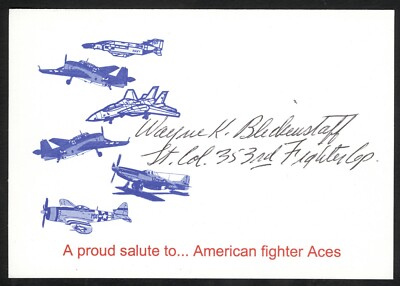 Wayne K. Blickenstaff
Lt. Col. 353rd Fighter Gp.
A proud salute to... American fighter Aces